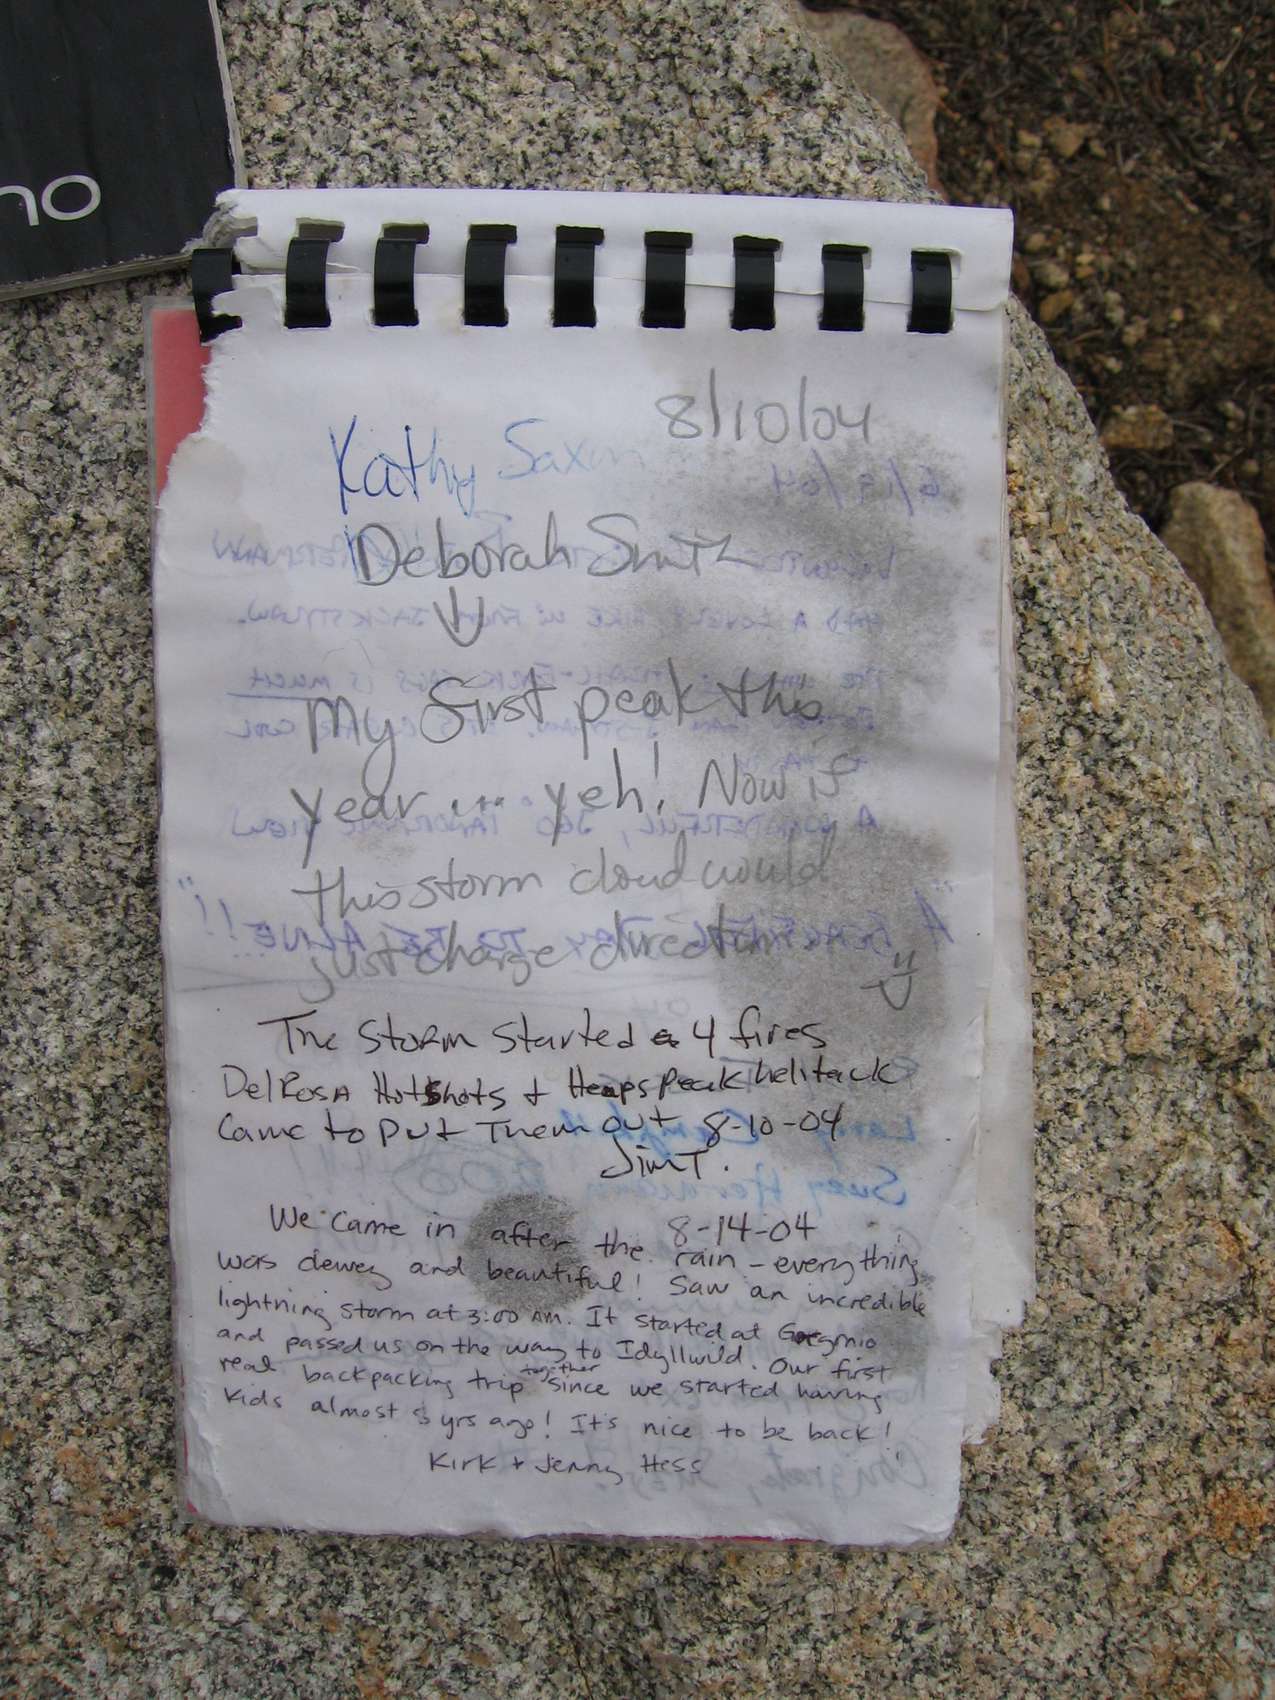 no
8/10/04
Kathy Saxon
Deborah Smith
My first peak this
year ... yeh! Now if
this storm cloud would
just change direction
The storm started 4 fires
Del Rosa Hotshots + Heaps Peak helitack
Came to put Them out 8-10-04
Jim T.
8-14-04
We came in after the rain - everything
was dewey and beautiful! Saw an incredible
lightning storm at 3:00 AM. It started at Gorgonio
and passed us on the way to Idyllwild. Our first
real backpacking trip together since we started having
kids almost 8 yrs ago! It's nice to be back!
Kirk + Jenny Hess